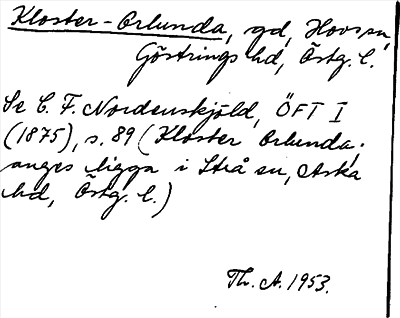 Kloster-Orlunda, gd, Hovs sn,
Göstrings hd, Östg. l.
Se C. F. Nordenskjöld, ÖFT I
(1875), s. 89 (Kloster Orlunda;
anges ligga i Strå sn, Aska
hd, Östg. l.)
Th. A. 1953.